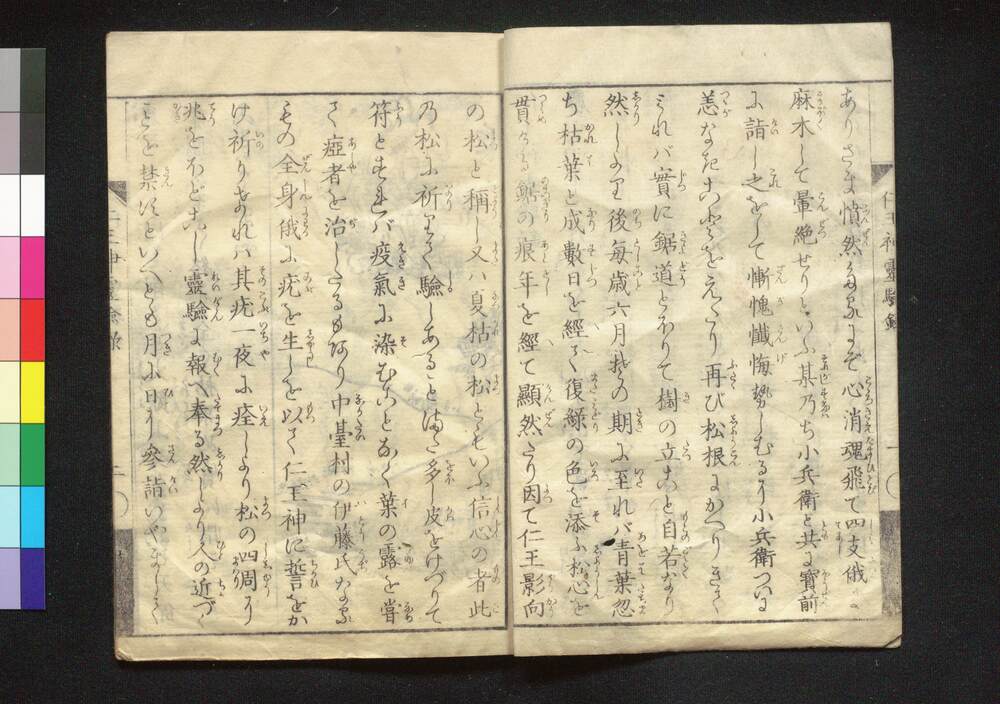 ありさま憤然たるにぞ心消魂飛て四支俄に
麻木して暈絶せりといふ某乃ち小兵衛と共に寳前
に詣し之をして慚愧懺悔勢しむるに小兵衛つひに
恙なきことをえたり再び松根にかへりきて
みれバ實に鋸道とほりて樹の立こと自若なり
然しより後毎歳六月我の期に至れバ青葉忽
ち枯葉と成數日を經て復緑の色を添ふ松心を
貫ける鋸の痕年を經て顯然たり因て仁王影向
の松と稱し又ハ夏枯の松ともいふ信心の者此
乃松に祈りて驗しあることはまた多し皮をけづりて
符とすれバ疫氣に染むことなく葉の露を嘗
て瘂者を治したるもあり中臺村の伊藤氏なる
もの全身俄に疣を生しを以て仁王神に誓をか
け祈りけれハ其疣一夜に痊しより松の四周に
兆をほどこし靈驗に報へ奉る然しより人の近づく
ことを禁ずといへとも月に日に参詣いやましく
仁王神靈驗録
一
仁王神靈驗録
二